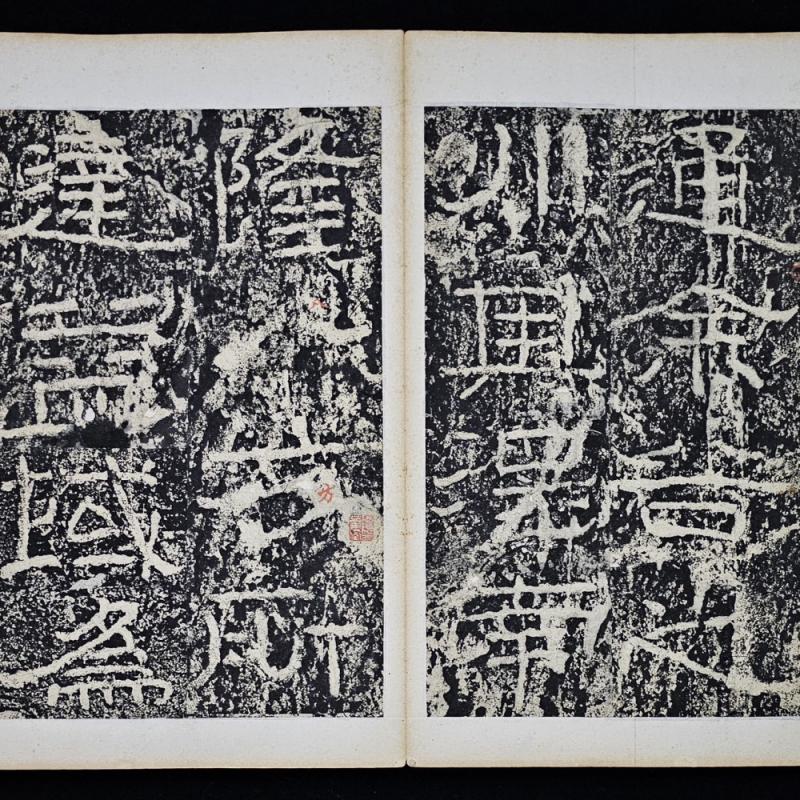 通余谷之
川其澤南
隆八方所
達益域為